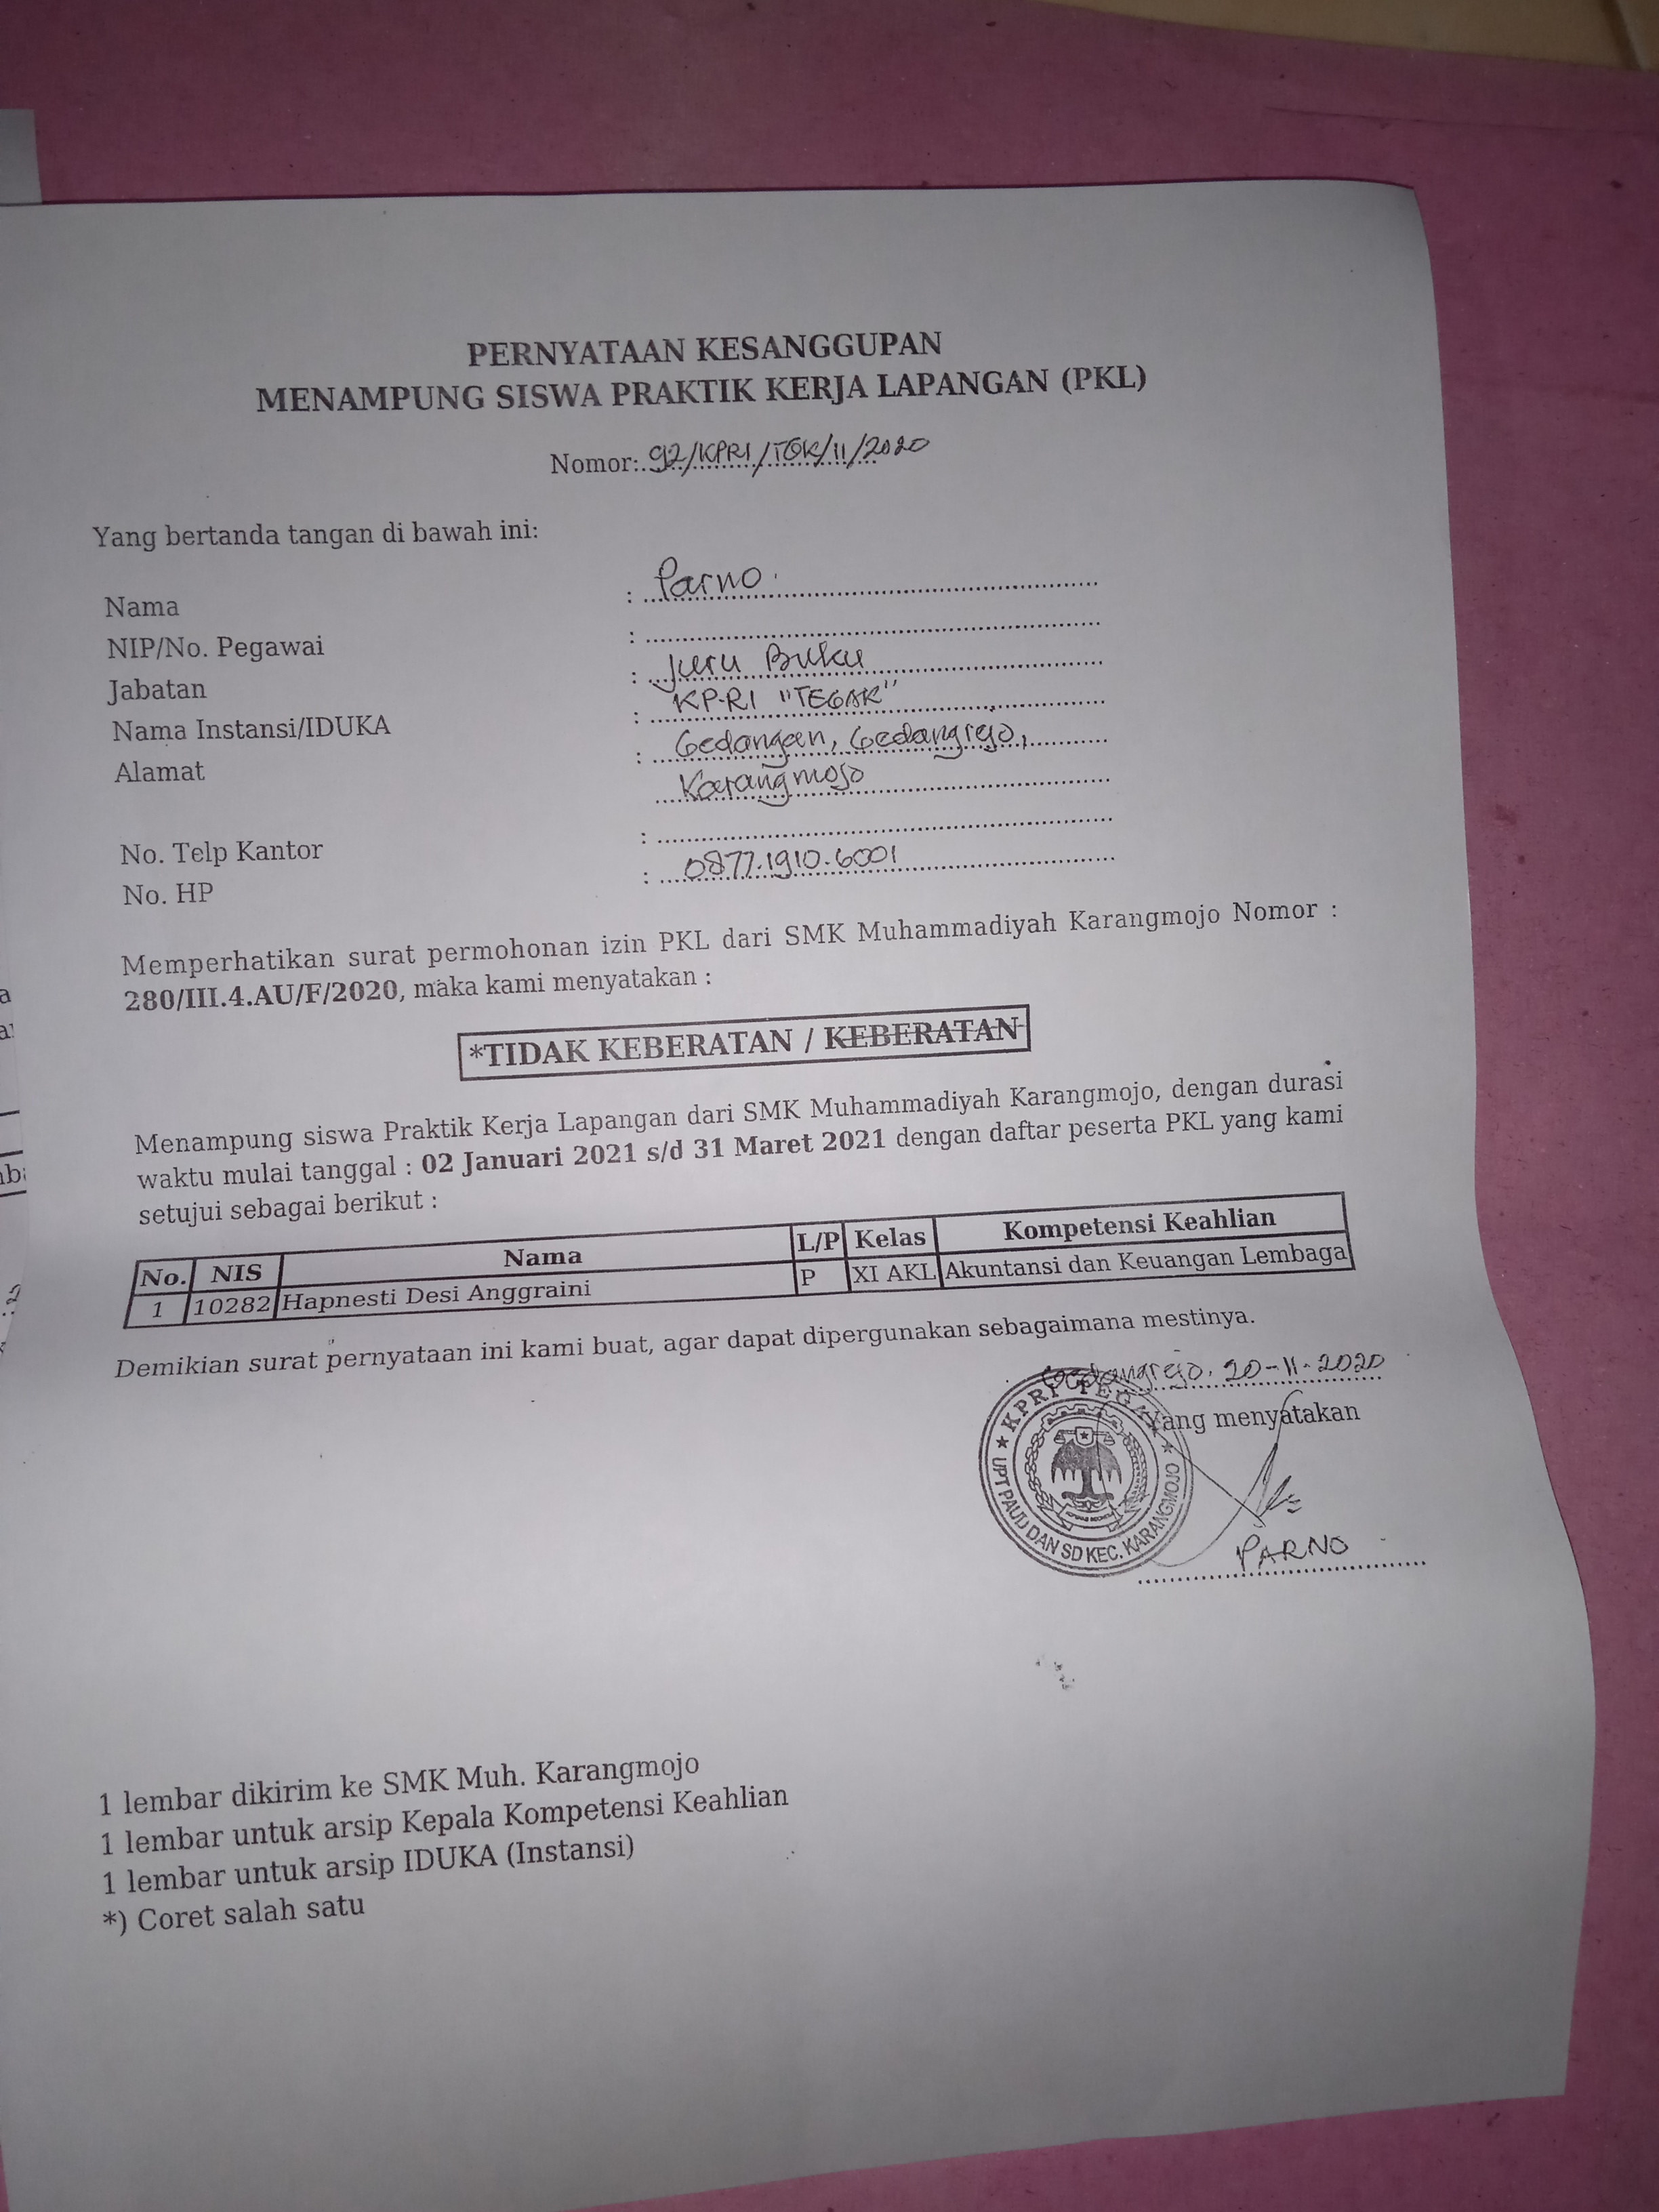 PERNYATAAN KESANGGUPAN
MENAMPUNG SISWA PRAKTIK KERJA LAPANGAN (PKL)
Nomor: 92/KPRI/TGK/11/2020
Yang bertanda tangan di bawah ini:
Nama : Parno.
NIP/No. Pegawai :
Jabatan : Juru Buku
Nama Instansi/IDUKA : KP-RI "TEGAR"
Alamat : Gedangan, Gedangrejo,
Karangmojo
No. Telp Kantor :
No. HP : 0877.1910.6001
Memperhatikan surat permohonan izin PKL dari SMK Muhammadiyah Karangmojo Nomor :
280/III.4.AU/F/2020, maka kami menyatakan :
*TIDAK KEBERATAN / KEBERATAN
Menampung siswa Praktik Kerja Lapangan dari SMK Muhammadiyah Karangmojo, dengan durasi
waktu mulai tanggal : 02 Januari 2021 s/d 31 Maret 2021 dengan daftar peserta PKL yang kami
setujui sebagai berikut :
No. NIS Nama L/P Kelas Kompetensi Keahlian
1 10282 Hapnesti Desi Anggraini P XI AKL Akuntansi dan Keuangan Lembaga
Demikian surat pernyataan ini kami buat, agar dapat dipergunakan sebagaimana mestinya.
Gedangrejo, 20-11-2020
Yang menyatakan
KPRI TEGAR
UPT PAUD DAN SD KEC. KARANGMOJO
PARNO
1 lembar dikirim ke SMK Muh. Karangmojo
1 lembar untuk arsip Kepala Kompetensi Keahlian
1 lembar untuk arsip IDUKA (Instansi)
*) Coret salah satu